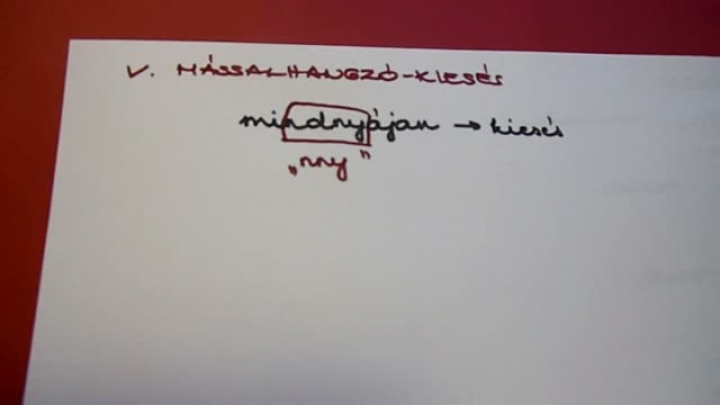 V. MÁSSALHANGZÓ-KIESÉS
mindnyájan → kiesés
„nny”